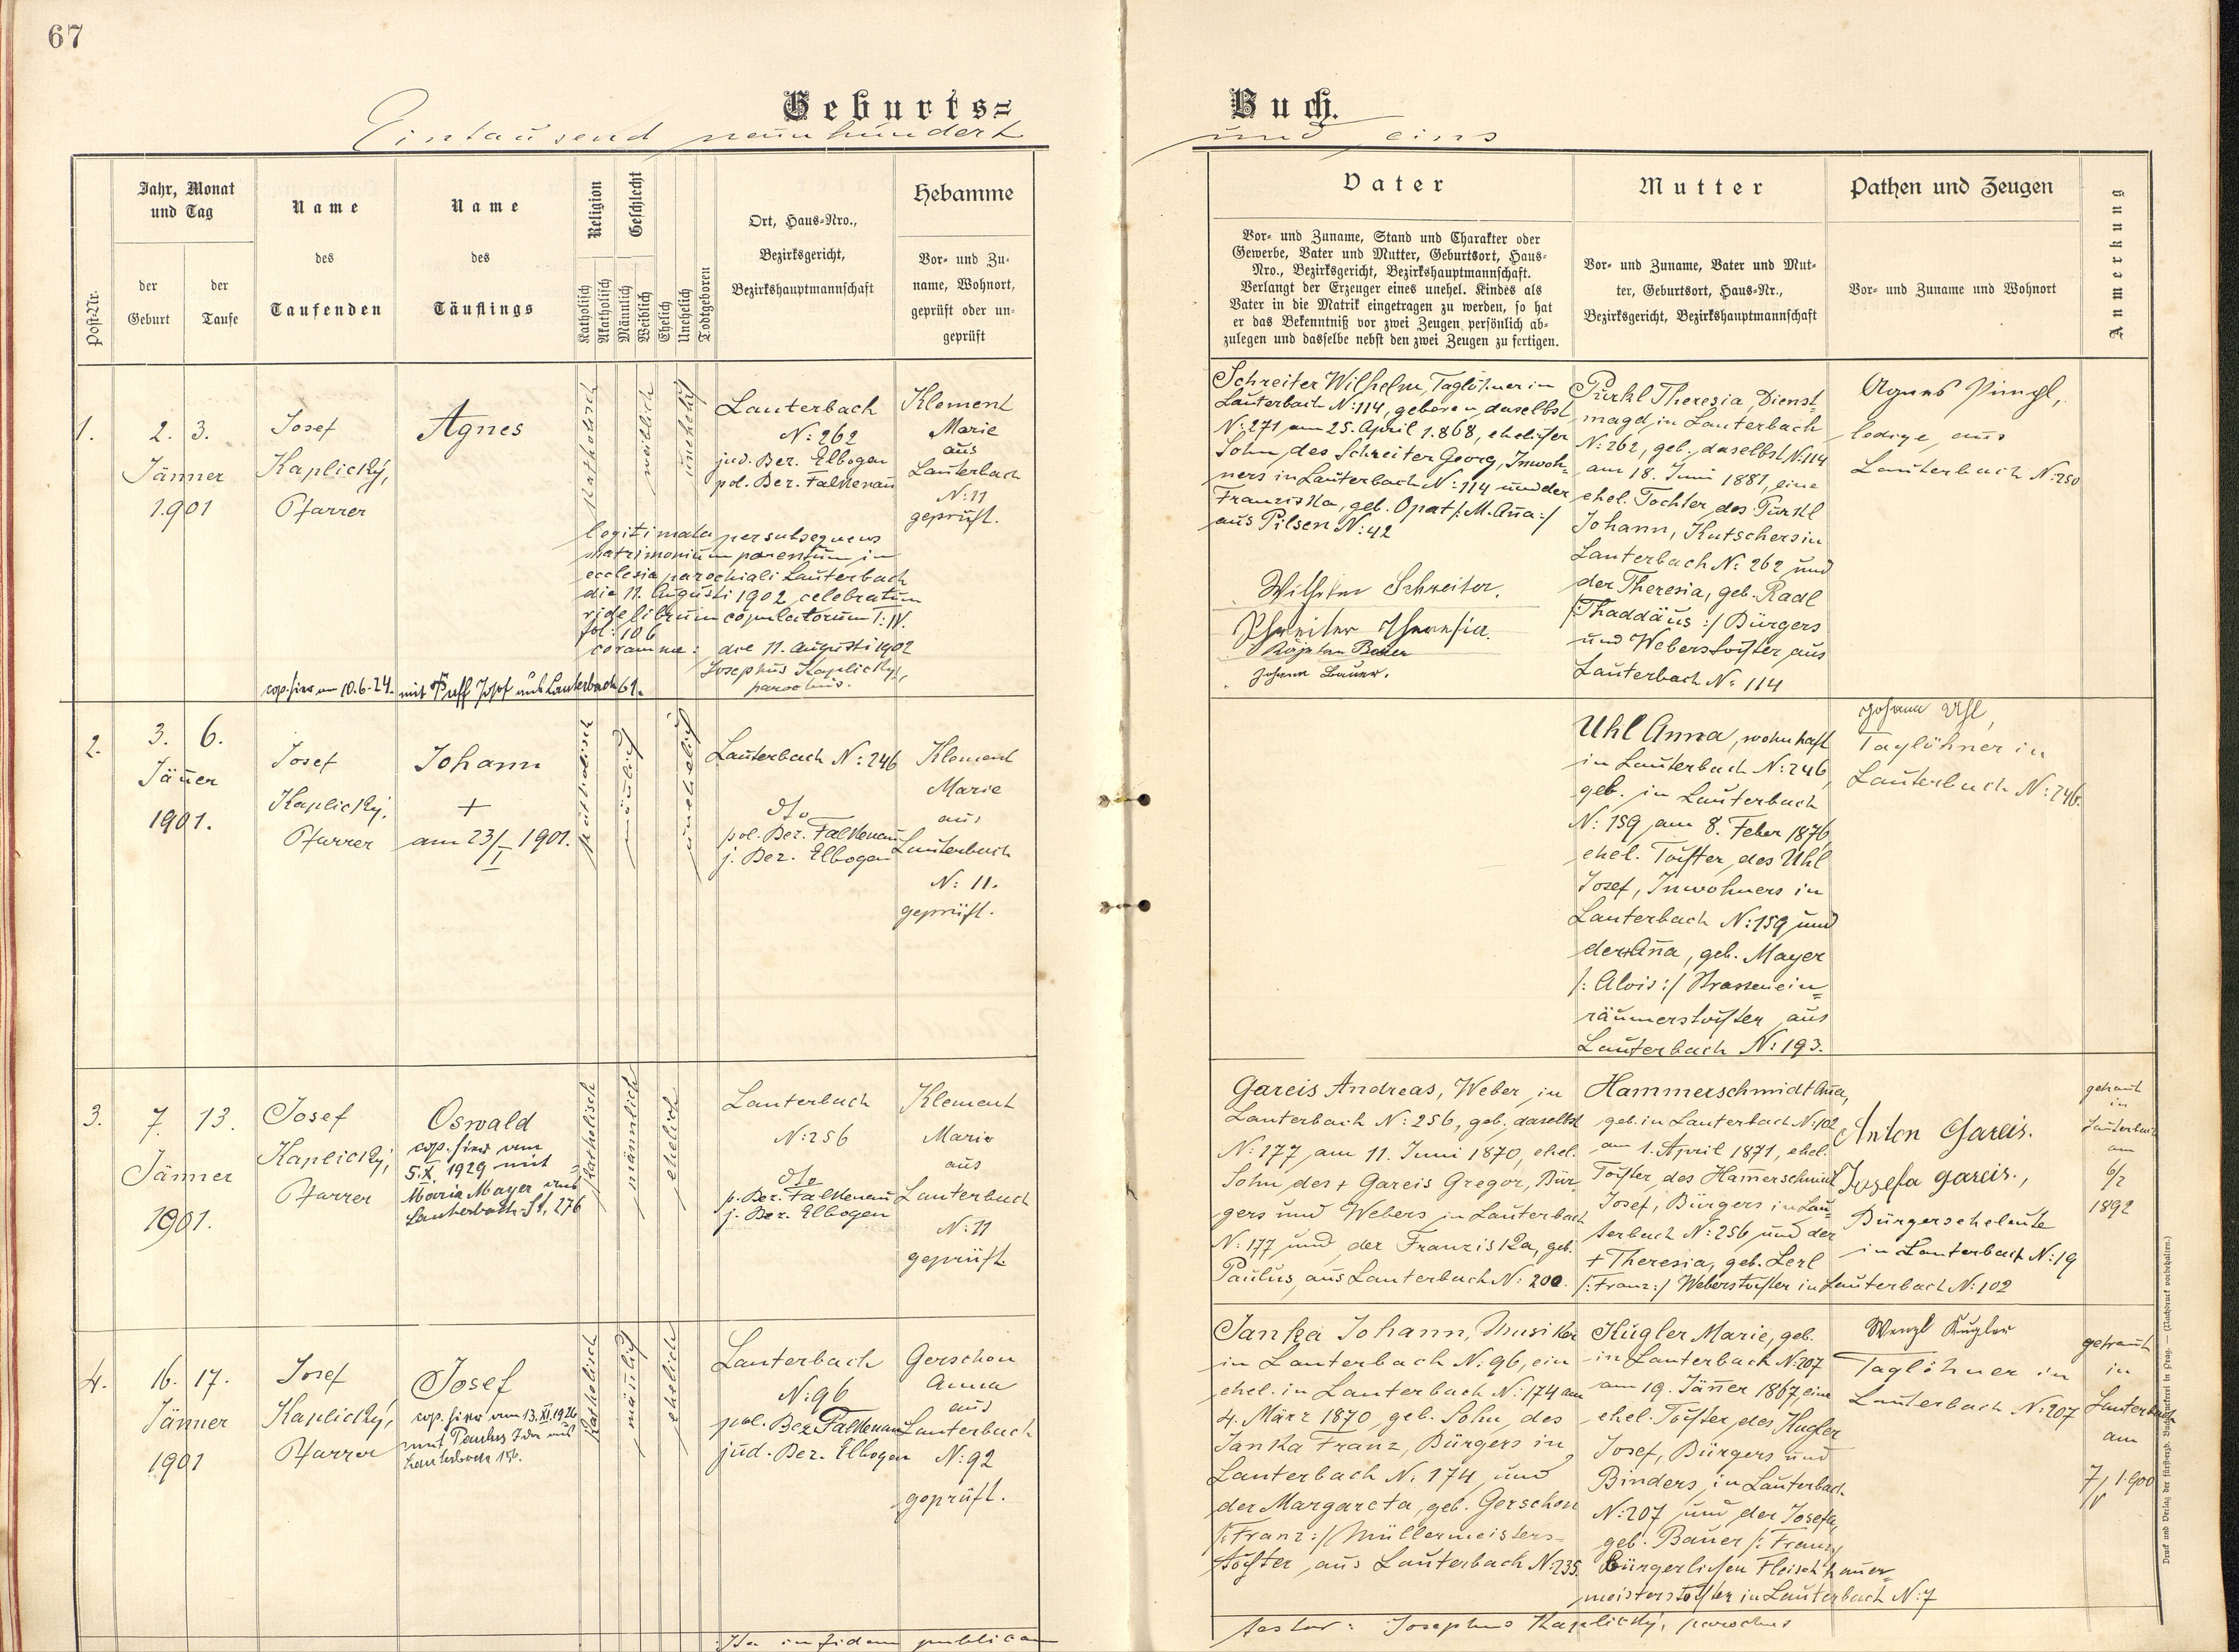 67
Geburts=
Buch.
Eintausend neunhundert
und eins
Post-Nr.
Jahr, Monat
und Tag
der
Geburt
der
Taufe
Name
des
Taufenden
Name
des
Täuflings
Religion
Katholisch
Akatholisch
Geschlecht
Männlich
Weiblich
Ehelich
Unehelich
Todtgeboren
Ort, Haus-Nro.,
Bezirksgericht,
Bezirkshauptmannschaft
Hebamme
Vor- und Zu-
name, Wohnort,
geprüft oder un-
geprüft
Vater
Vor- und Zuname, Stand und Charakter oder
Gewerbe, Vater und Mutter, Geburtsort, Haus-
Nro., Bezirksgericht, Bezirkshauptmannschaft.
Verlangt der Erzeuger eines unehel. Kindes als
Vater in die Matrik eingetragen zu werden, so hat
er das Bekenntniß vor zwei Zeugen persönlich ab-
zulegen und dasselbe nebst den zwei Zeugen zu fertigen.
Mutter
Vor- und Zuname, Vater und Mut-
ter, Geburtsort, Haus-Nr.,
Bezirksgericht, Bezirkshauptmannschaft
Pathen und Zeugen
Vor- und Zuname und Wohnort
Anmerkung
1.
2. 3.
Jänner
1.901
Josef
Kaplický,
Pfarrer
Agnes
katholisch
weiblich
unehelich
Lauterbach
N: 262
jud. Bez. Elbogen
pol. Bez. Falkenau
Klement
Marie
aus
Lauterbach
N: 11
geprüft.
legitimata per subsequens
matrimonium parentum in
ecclesia parochiali Lauterbach
die 11. Augusti 1902 celebratum
vide librum copulatorum T: IV.
fol: 106
coram me: die 11. Augusti 1902
Josephus Kaplický,
parochus.
cop. hier am 10.6.24. mit Puff Josef aus Lauterbach 61.
Schreiter Wilhelm, Taglöhner in
Lauterbach N: 114, geboren daselbst
N: 271 am 25. April 1.868, ehelicher
Sohn des Schreiter Georg, Inwoh-
ners in Lauterbach N: 114 und der
Franziska, geb. Opat /: M. Aña :/
aus Pilsen N: 42
Wilhelm Schreiter.
Schreiter Theresia.
Bauer
Johann Bauer.
Pürkl Theresia, Dienst-
magd in Lauterbach
N: 262, geb. daselbst N: 114
am 18. Juni 1881, eine
ehel. Tochter des Pürkl
Johann, Kutschers in
Lauterbach N: 262 und
der Theresia, geb. Radl
/: Thaddäus :/ Bürgers
und Weberstochter aus
Lauterbach N: 114
Agnes
ledige, aus
Lauterbach N: 250
2.
3. 6.
Jäner
1901.
Josef
Kaplický,
Pfarrer
Johann
+
am 23/I 1901.
katholisch
mänlich
unehelich
Lauterbach N: 246
dto
pol. Bez. Falkenau
j. Bez. Elbogen
Klement
Marie
aus
Lauterbach
N: 11.
geprüft.
Uhl Anna, wohnhaft
in Lauterbach N: 246,
geb. in Lauterbach
N: 159 am 8. Feber 1876,
ehel. Tochter des Uhl
Josef, Inwohners in
Lauterbach N: 159 und
der + Aña, geb. Mayer
/: Alois :/ Strassenein=
räumerstochter aus
Lauterbach N: 193.
Johann Uhl,
Taglöhner in
Lauterbach N: 246.
3.
7. 13.
Jänner
1901.
Josef
Kaplický,
Pfarrer
Oswald
cop. hier am
5.X. 1929 mit
Maria Mayer aus
Lauterbach-St. 276
katholisch
männlich
ehelich
Lauterbach
N: 256
dto
p. Bez. Falkenau
j. Bez. Elbogen
Klement
Marie
aus
Lauterbach
N: 11
geprüft.
Gareis Andreas, Weber in
Lauterbach N: 256, geb. daselbst
N: 177 am 11. Juni 1870, ehel.
Sohn des + Gareis Gregor, Bür-
gers und Webers in Lauterbach
N: 177 und der Franziska, geb.
Paulus, aus Lauterbach N: 200.
Hammerschmidt Aña,
geb. in Lauterbach N: 102
am 1. April 1871, ehel.
Tochter des Hamerschmidt
Josef, Bürgers in Lau-
terbach N: 256 und der
+ Theresia, geb. Lerl
/: Franz :/ Weberstochter in Lauterbach N: 102
Anton Gareis.
Josefa Gareis.,
Bürgerseheleute
in Lauterbach N: 19
getraut
in
Lauterbach
am
6/2
1892
4.
16. 17.
Jänner
1901
Josef
Kaplický,
Pfarrer
Josef
cop. hier am 13.XI.1926
mit Paulus Ida aus
Lauterbach 156.
katholisch
mänlich
ehelich
Lauterbach
N: 96
pol. Bez. Falkenau
jud. Bez. Elbogen
Gerschon
Anna
aus
Lauterbach
N: 92
geprüft.
Janka Johann, Musiker
in Lauterbach N: 96, ein
ehel. in Lauterbach N: 174 am
4. März 1870 geb. Sohn des
Janka Franz, Bürgers in
Lauterbach N: 174 und
der Margareta, geb. Gerschon
/: Franz :/ Müllermeisters-
tochter aus Lauterbach N: 235.
Kugler Marie, geb.
in Lauterbach N: 207
am 19. Jäner 1867, eine
ehel. Tochter des Kugler
Josef, Bürgers und
Binders in Lauterbach
N: 207 und der Josefa,
geb. Bauer /: Franz
bürgerlichen Fleischhauer-
meisterstochter in Lauterbach N: 7
Wenzl Kugler
Taglöhner in
Lauterbach N: 207
getraut
in
Lauterbach
am
7/V 1.900
Ita in fidem publicam
testor: Josephus Kaplický, parochus
Druck und Verlag der fürsterzb. Buchdruckerei in Prag. — (Nachdruck vorbehalten.)